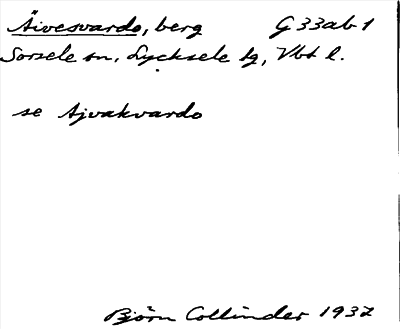 Äivesvardo, berg G 33ab 1
Sorsele sn, Lycksele lg, Vbt l.
se Ajvakvardo
Björn Collinder 1937